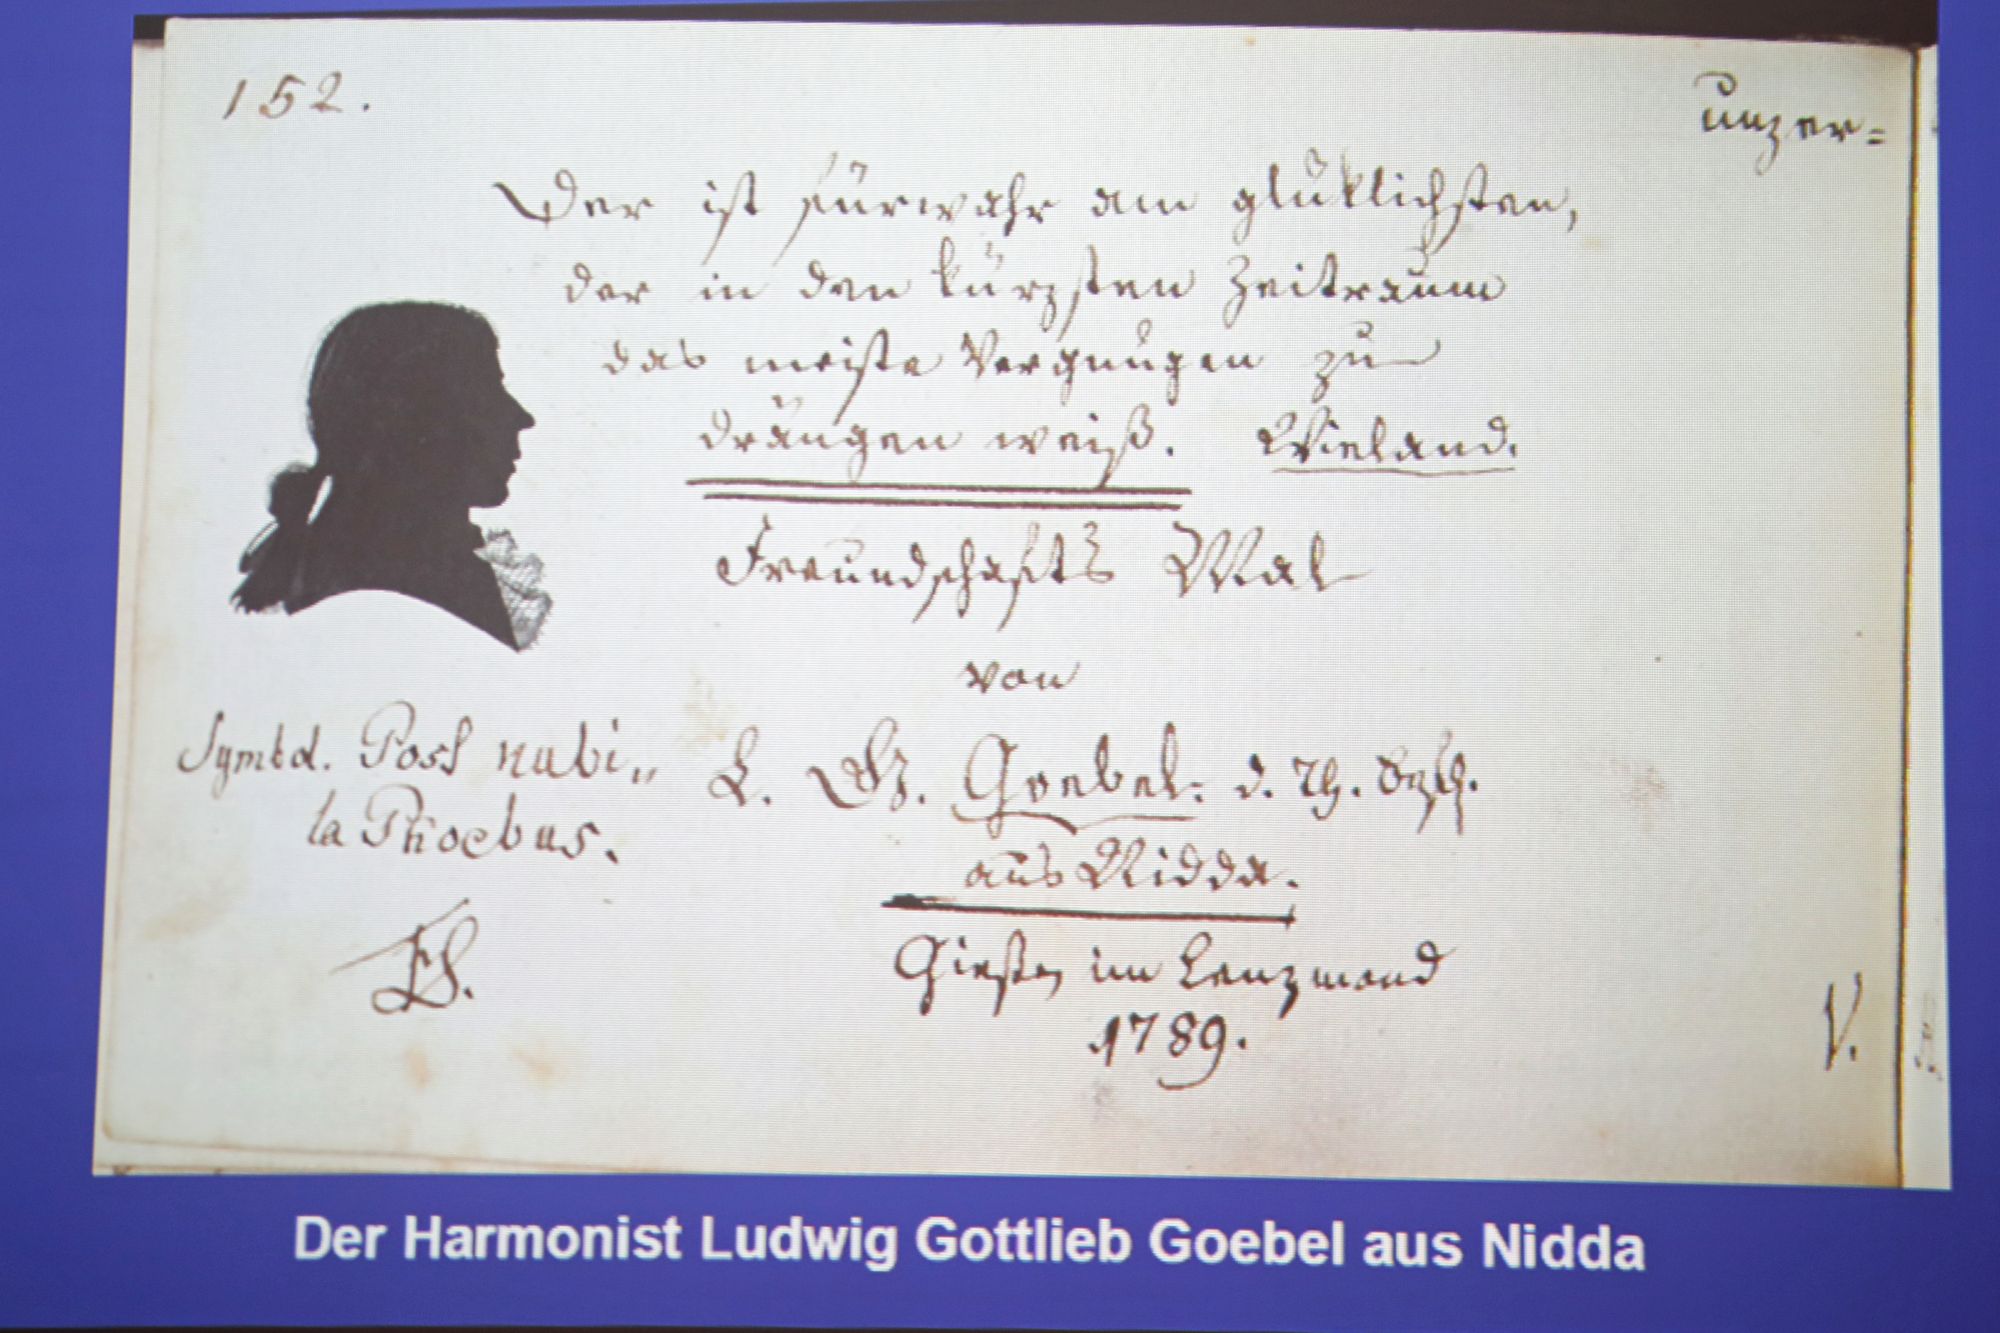 152.
unzer=
Der ist fürwahr am glüklichsten,
der in den kürzsten Zeitraum
das meiste Vergnügen zu
drängen weiß. Wieland.
Freundschafts Mal
von
Symbol. Post nubi„
la Phoebus.
L. G. Goebel. d. Th.
aus Nidda.
Giesen im Lenzmond
1789.
V.
Der Harmonist Ludwig Gottlieb Goebel aus Nidda